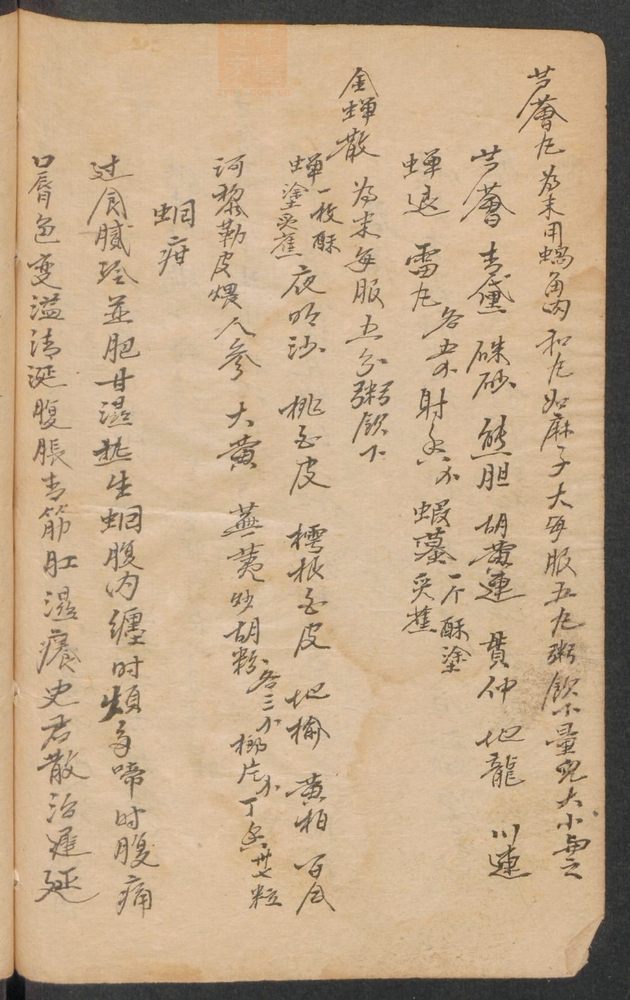 芦薈丸 為末用蝸角肉和丸如麻子大每服五丸粥飲下量兒大小與之
芦薈 青黛 硃砂 熊胆 胡黄連 貫仲 地龍 川連
蟬退 雷丸 各五个 射香个 蝦蟇 一个酥塗炙蕉
金蟬散 為末每服五分粥飲下
蟬 一枚酥塗炙蕉 夜明沙 桃白皮 樗根白皮 地榆 黄柏 百合
诃黎勒皮煨 人参 大黄 蕪荑炒 胡粉 各三个 榔片个 丁香 廿七粒
蛔疳
过食膩冷並肥甘濕热生蛔腹内纏时煩多啼时腹痛
口唇色变溢清涎腹脹青筋肛濕癢史君散治遲延